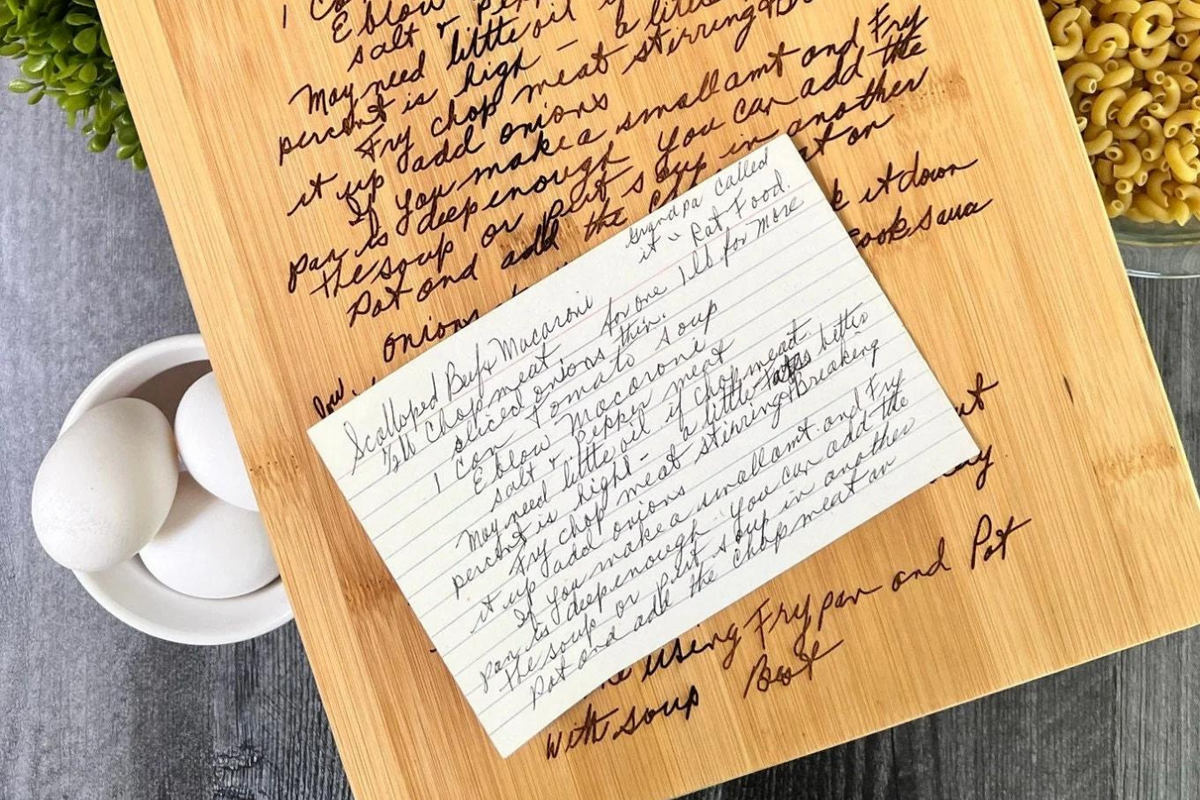 1 Ca
Eblow
salt & Pepp
May need little oil i
percent is high - a little
Fry chop meat stirring &Br
it up add onions
If you make a small amt and Fry
pan is deep enough you can add the
the soup or Put soup in another
Pot and add the ch at on
onions k it down
low cook saua
ut
ay
using Frypan and Pot
with soup Box
Grandpa called
it " Rat Food.
Scalloped Beef & Macaronie
1/2 lb Chop meat for one 1 lb for more
sliced onions thin.
1 can Tomato soup
Eblow Macaronie
salt & Pepper meat
May need little oil if chop meat
percent is high - a little Tastes better
Fry chop meat stirring &Breaking
it up add onions
If you make a small amt and Fry
pan is deep enough you can add the
the soup or Put soup in another
Pot and add the chop meat an